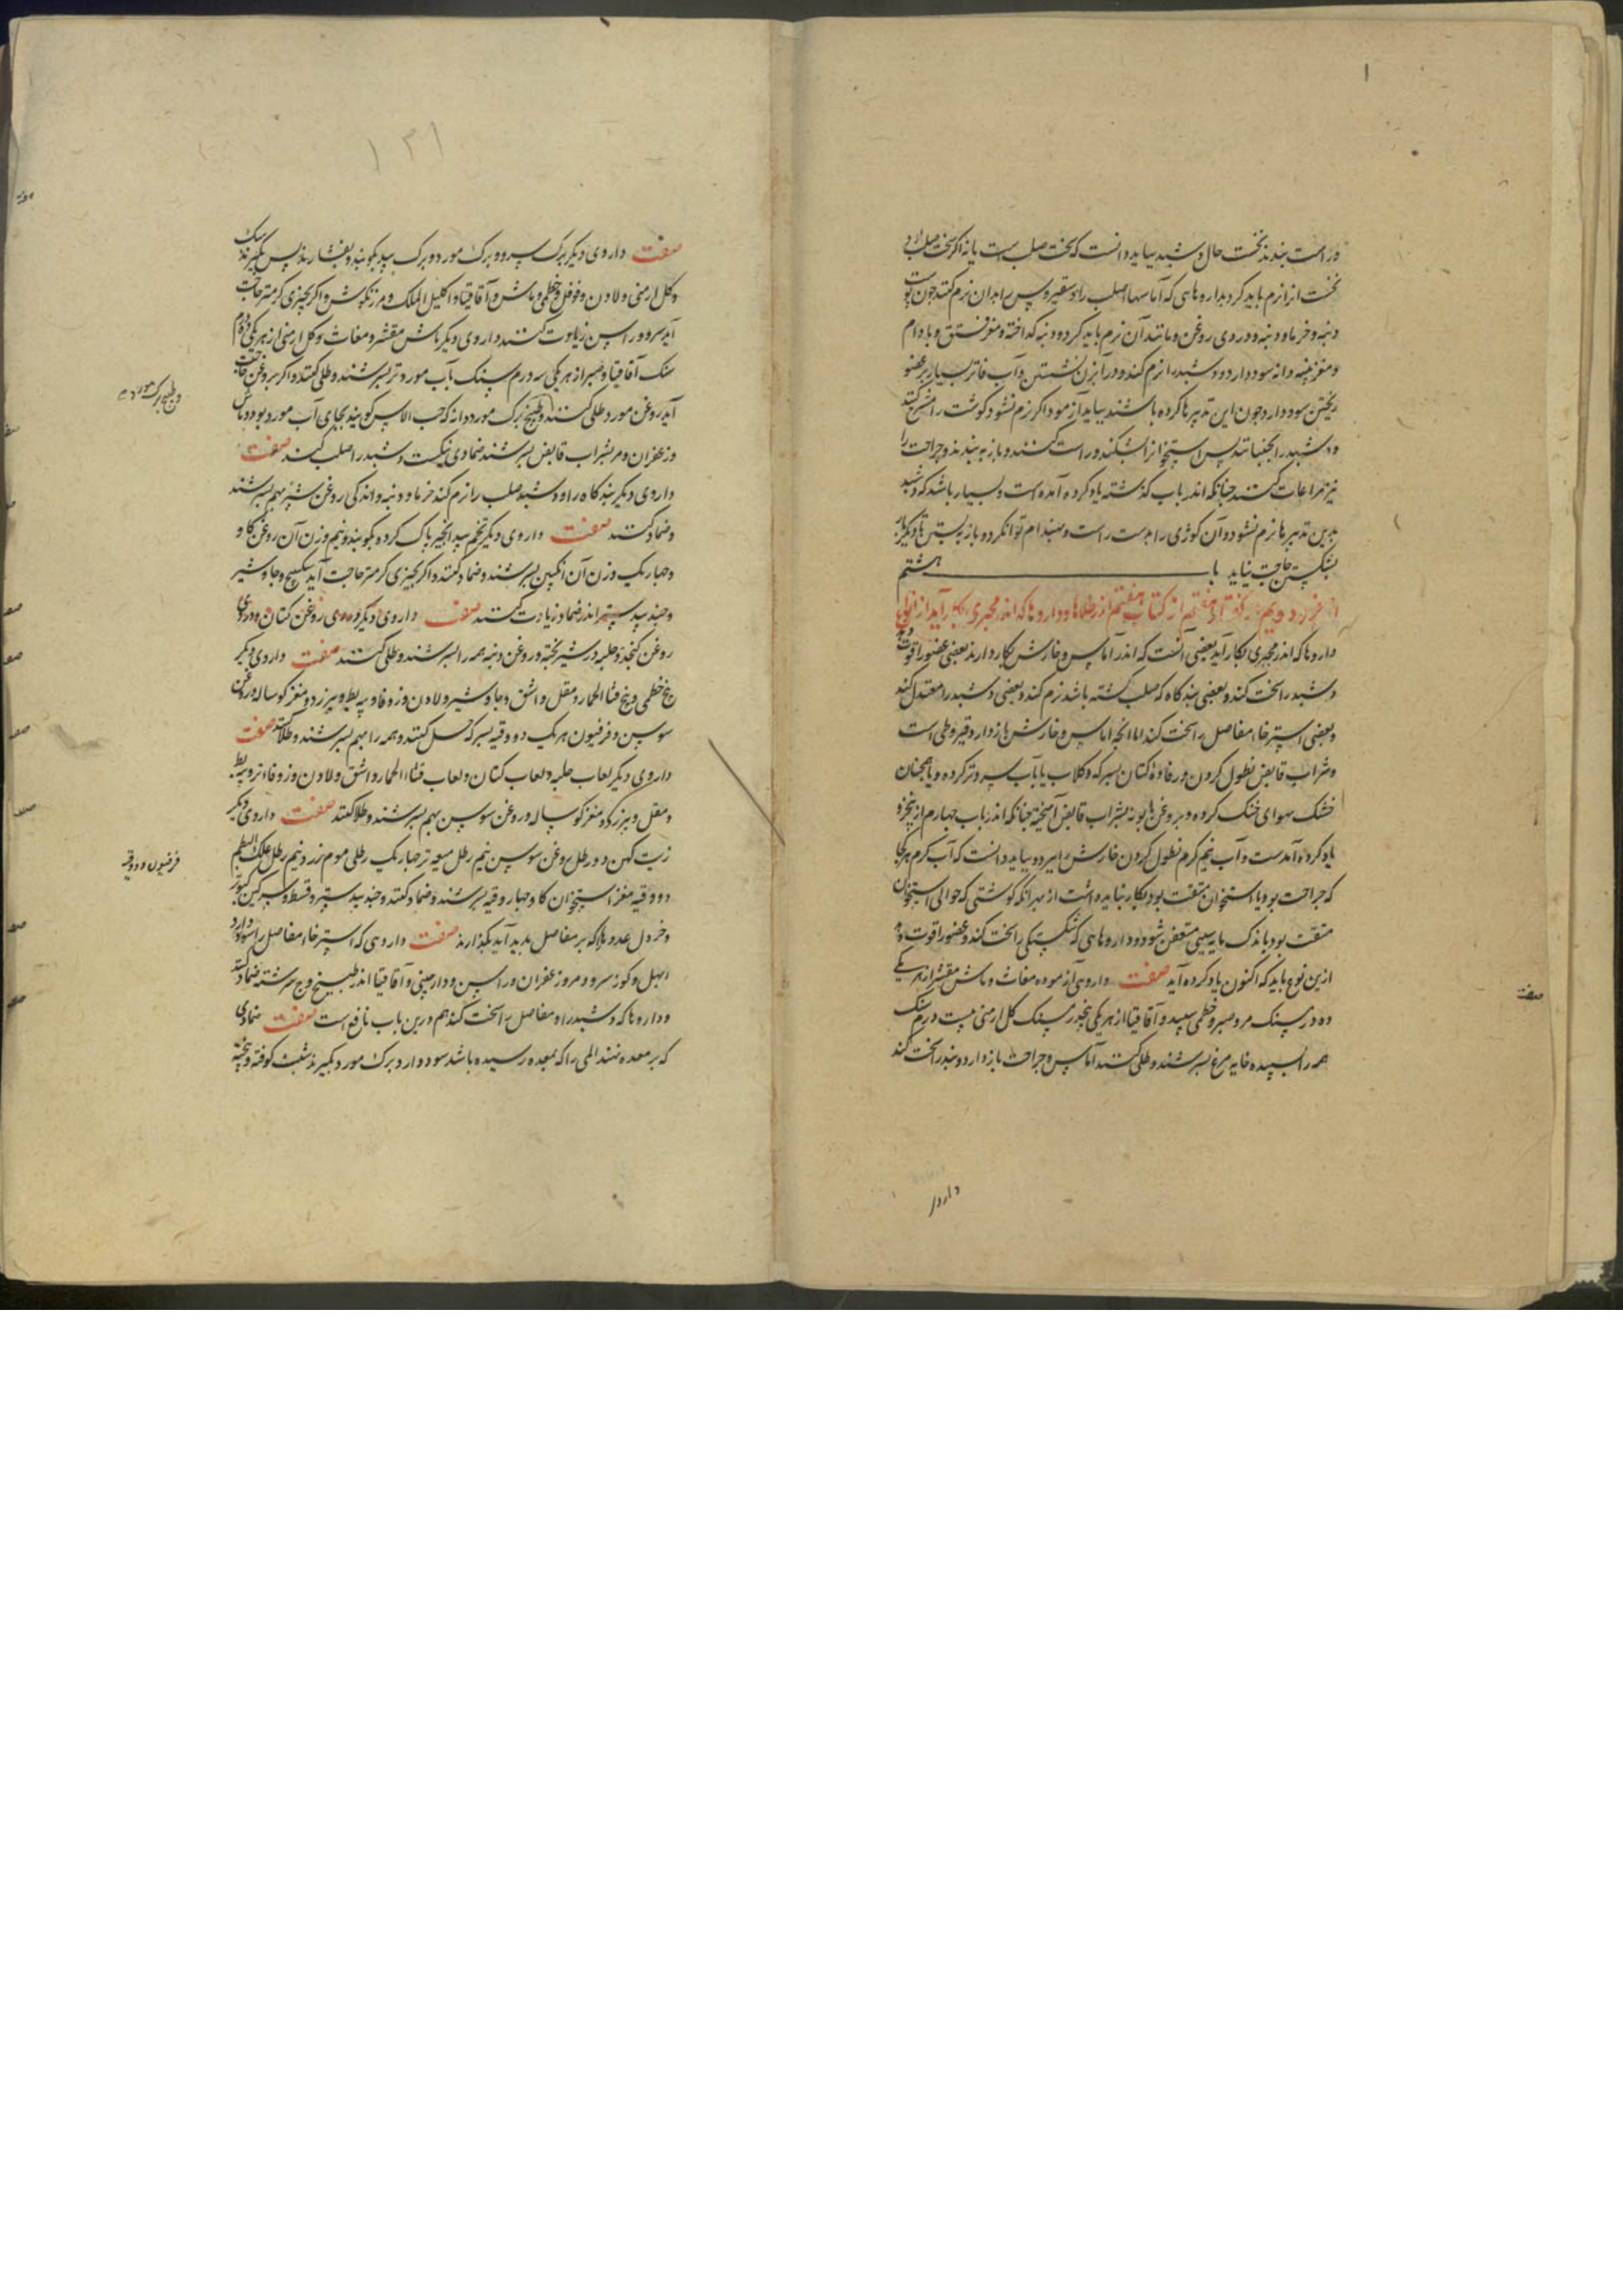 و راست بندند نخست حال دشبد بباید دانست که سخت صلب است یا نه اگر سخت صلب بود
نخست انرا نرم باید کرد بداروهایی که آماسهاء صلب را و سقیروس را بدان نرم کنند چون پوست
دنبه و خرما و دنبه و دردی روغن و مانند آن نرم باید کرد و دنبه گداخته و مغز فستق و بادام
و مغز پنبه دانه سود دارد و دشبد را نرم کند و در آبزن نشستن و آب فاتر بسیار بر عضو
ریختن سود دارد چون این تدبیرها کرده باشند بباید آزمود اگر نرم نشود گوشت را شرح کنند
و دشبد را بجنبانند پس استخوانرا بشکنند و راست کنند و باز به بندند و جراحت را
نیز مراعات کنند چنانکه اندر باب گذشته یاد کرده آمده است و بسیار باشد که دشبد
بدین تدبیرها نرم نشود و آن کوژی را بدست راست و بهندام توان کرد و باز بستن تا دیگر بار
بشکستن حاجت نیاید با ب هشتم
از جزو دویم از گفتار هفتم از کتاب هفتم اندر طلاها و داروها که اندر مجبری بکار آید از انواع
داروها که اندر مجبری بکار آید بعضی آنست که اندر آماس و خارش بکار دارند بعضی عضو را قوت دهد
دشبد را سخت کند و بعضی بندگاه که صلب گشته باشد نرم کند و بعضی دشبد را معتدل کند
و بعضی استرخاء مفاصل را سخت کند اما انچه اماس و خارش باز دارد قیروطی است
و شراب قابض نطول کردن و رفادهٔ کتان بسرکه و گلاب یا بآب سرد تر کرده و یا همچنان
خشک بهوای خنک کرده و بروغن بابونه بشراب قابض آمیخته چنانکه اندر باب چهارم ازین جزو
یاد کرده آمدست و آب نیم گرم نطول کردن خارش را ببرد و بباید دانست که آب گرم هرکجا
که جراحت بود یا استخوان متفتت بود بکار نباید داشت از بهر انکه گوشتی که حوالی استخوان
متفتت بود باندک مایه سببی متعفن شود و داروهایی که شکستگی را سخت کند و عضو را قوت دهد
ازین نوع باید که اکنون یاد کرده آید صفت داروی آزموده مغاث و ماش مقشر از هر یکی
ده درم سنگ مر و صبر و خطمی سپید و آقاقیا از هر یکی پنجدرم سنگ گل ارمنی بیست درم سنگ
همه را بسپیده خایه مرغ بسرشند و طلی کنند آماس و جراحت باز دارد و بند را سخت کند
صفت
داروی
۱۳۱
صفت داروی دیگر برگ سرو و برگ مورد و برگ بید بکوبند و بفشارند پس بگیرند سک
و گل ارمنی و لادن و فوفل و خطمی و ماش و آقاقیا و اکلیل الملک و مرزنگوش و اگر بچیزی گرمتر حاجت
آید سرو و راسن زیادت کنند داروی دیگر ماش مقشر و مغاث و گل ارمنی از هر یکی ده درم
سنک آقاقیا و صبر از هر یکی سه درم سنک بآب مورد تر بسرشند و طلی کنند و اگر بروغن حاجت
آید روغن مورد طلی کنند و طبیخ برگ مورد دانه که حب الاس گویند بجای آب مورد بود و ماش
و زعفران و مر بشراب قابض بسرشند ضمادی نیکست دشبد را صلب کند صفت
داروی دیگر بندگاه را و دشبد صلب را نرم کند خرما و دنبه و اندکی روغن شیره بهم بسرشند
و ضماد کنند صفت داروی دیگر تخم بید انجیر پاک کرده بکوبند و نیم وزن آن روغن گاو
و چهار یک وزن آن انگبین بسرشند و ضماد کنند و اگر بچیزی گرمتر حاجت آید سکبینج و جاوشیر
و جند بیدستر اندر ضماد زیادت کنند صفت داروی دیگر دردی روغن کتان و دردی
روغن کنجد و حلبه در شیر پخته و روغن دنبه همه را بسرشند و طلی کنند صفت داروی دیگر
بیخ خطمی و بیخ قثاء الحمار و مقل و اشق و جاوشیر و لادن و زوفا و پیه بط و بیرزد و مغز گوساله و روغن
سوسن و فرفیون هر یک دو وقیه بسرکه حل کنند و همه را بهم بسرشند و طلا کنند صفت
داروی دیگر لعاب حلبه و لعاب کتان و لعاب قثاء الحمار و اشق و لادن و زوفاء تر و پیه بط
و مقل و بیرزد و مغز گوساله و روغن سوسن بهم بسرشند و طلا کنند صفت داروی دیگر
زیت کهن دو رطل روغن سوسن نیم رطل میعه تر چهار یک رطلی موم زرد نیم رطل علک البطم
دو وقیه مغز استخوان گاو چهار وقیه بسرشند و ضماد کنند و جند بیدستر و قسط و سرگین کبوتر
و خردل غددها که بر مفاصل پدید آید بگذارند صفت داروی که استرخاء مفاصل را سود دارد
ابهل و گوز سرو و مر و زعفران و راسن و دارچینی و آقاقیا اندر طبیخ وج سرشته ضماد کنند
و داروها که دشبد را و مفاصل را سخت کند هم درین باب نافع است صفت ضمادی
که بر معده نهند المی را که بمعده رسیده باشد سود دارد برگ مورد بگیرند شبث کوفته و پخته
و طبیخ برک مورد
فرفیون دو وقیه